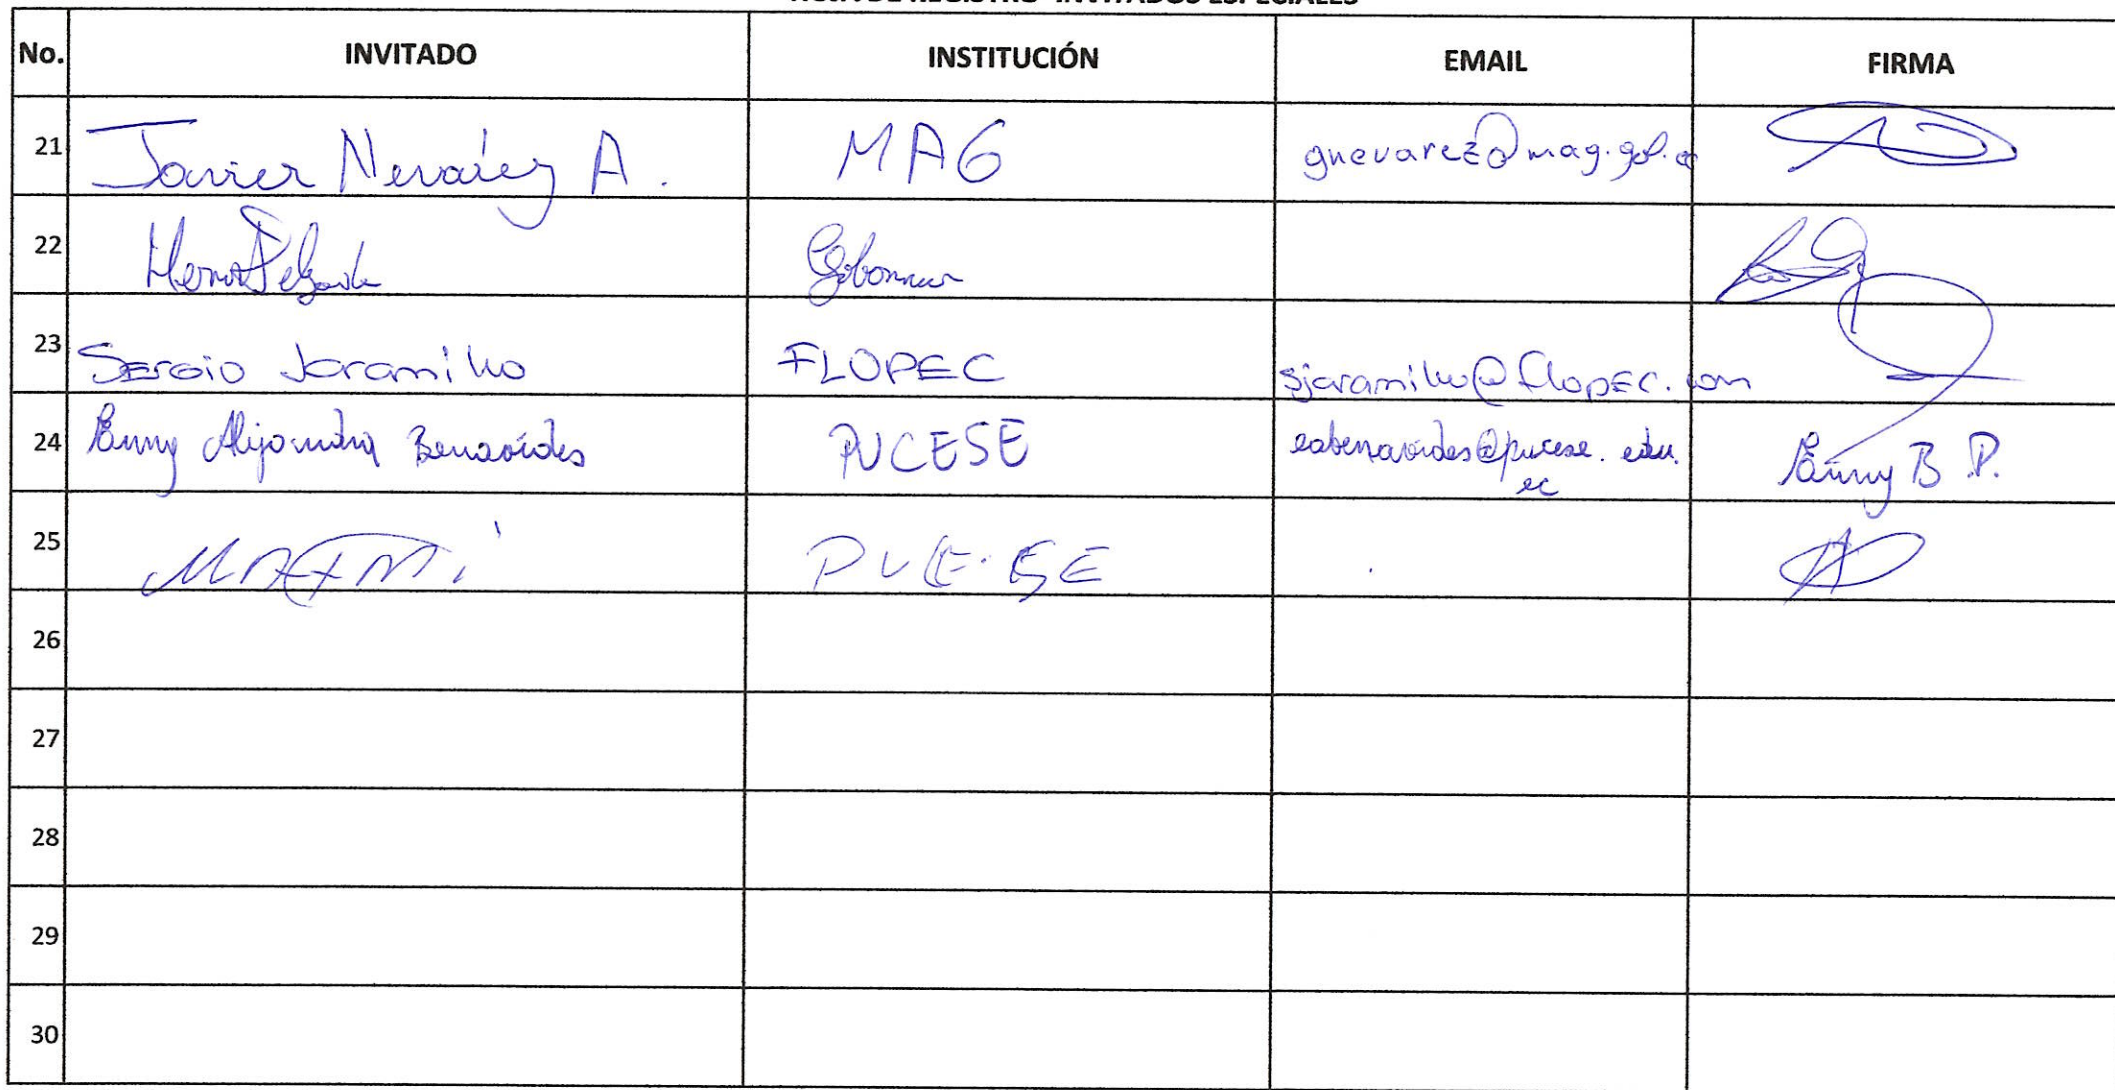 HOJA DE REGISTRO INVITADOS ESPECIALES
No. INVITADO INSTITUCIÓN EMAIL FIRMA
21 Javier Nevárez A. MAG gnevarez@mag.gob.ec
22
23 SERGIO Jaramillo FLOPEC sjaramillo@flopec.com
24 Enny Alejandra Benavides PUCESE eabenavides@pucese.edu.
ec Enny B P.
25 PUCESE
26
27
28
29
30